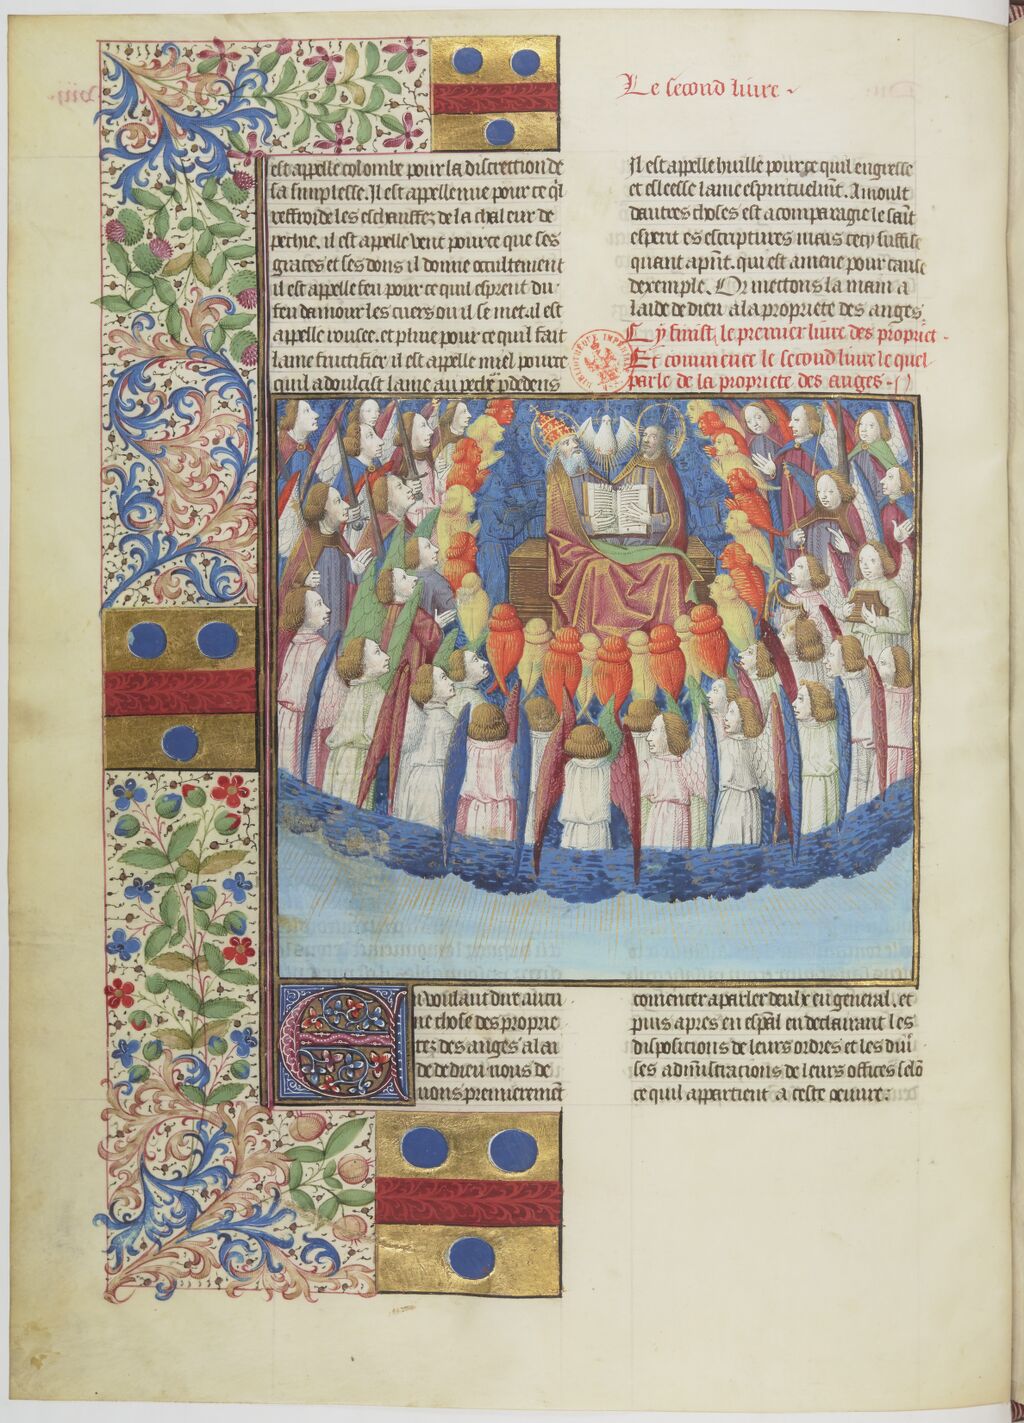 Le second liure
est appelle colombe pour la discrection de
sa simplesse. Il est appelle nue pour ce q̃l
reffroide les eschauffez de la chaleur de
pechie. il est appelle vent pource que ses
graces et ses dons il donne occultement
il est appelle feu pour ce quil esprent du
feu damour les cuers ou il se met. il est
appelle rousee. et pluie pour ce quil fait
lame fructifier il est appelle miel pource
quil adoulcist lame au peche
Il est appelle huille pource quil engresse
et esleesse lame espirituelmt̃. A moult
dautres choses est acomparagie le sait̃
esperit es escriptures mais cecy suffise
quant apñt. qui est amene pour cause
dexemple. Or mettons la main a
laide de dieu ala propriete des anges.
Cy finist le premier liure des propriet
Et commence le second liure le quel
parle de la propriete des anges
BIBLIOTHEQUE IMPERIALE
En voulant dire aucu
ne chose des proprie
tez des anges alai
de de dieu nous de
uons premieremẽt
comencer a parler deulx en general. et
puis apres en esp̃al en declairant les
disposicions de leurs ordres et les diu̾
ses admĩstracions de leurs offices selõ
ce quil appartient a ceste oeuure.